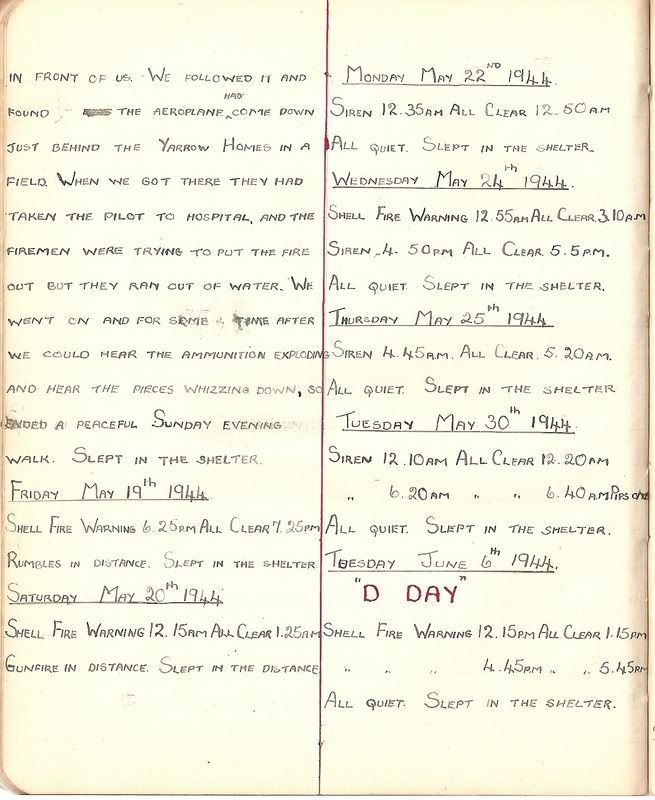 IN FRONT OF US. WE FOLLOWED IT AND
FOUND THE AEROPLANE HAD COME DOWN
JUST BEHIND THE YARROW HOMES IN A
FIELD. WHEN WE GOT THERE THEY HAD
TAKEN THE PILOT TO HOSPITAL, AND THE
FIREMEN WERE TRYING TO PUT THE FIRE
OUT BUT THEY RAN OUT OF WATER. WE
WENT ON AND FOR SOME TIME AFTER
WE COULD HEAR THE AMMUNITION EXPLODING
AND HEAR THE PIECES WHIZZING DOWN, SO
ENDED A PEACEFUL SUNDAY EVENING
WALK. SLEPT IN THE SHELTER.
FRIDAY MAY 19TH 1944
SHELL FIRE WARNING 6.25PM ALL CLEAR 7.25PM
RUMBLES IN DISTANCE. SLEPT IN THE SHELTER
SATURDAY MAY 20TH 1944
SHELL FIRE WARNING 12.15AM ALL CLEAR 1.25AM
GUNFIRE IN DISTANCE. SLEPT IN THE DISTANCE
MONDAY MAY 22ND 1944.
SIREN 12.35AM ALL CLEAR 12.50AM
ALL QUIET. SLEPT IN THE SHELTER.
WEDNESDAY MAY 24TH 1944.
SHELL FIRE WARNING 12.55AM ALL CLEAR 3.10AM
SIREN 4.50PM ALL CLEAR 5.5PM.
ALL QUIET. SLEPT IN THE SHELTER.
THURSDAY MAY 25TH 1944
SIREN 4.45AM. ALL CLEAR. 5.20AM.
ALL QUIET. SLEPT IN THE SHELTER
TUESDAY MAY 30TH 1944.
SIREN 12.10AM ALL CLEAR 12.20AM
" 6.20AM " " 6.40AM PIPS
ALL QUIET. SLEPT IN THE SHELTER.
TUESDAY JUNE 6TH 1944.
"D DAY"
SHELL FIRE WARNING 12.15PM ALL CLEAR 1.15PM
" " " 4.45PM " " 5.45PM
ALL QUIET. SLEPT IN THE SHELTER.